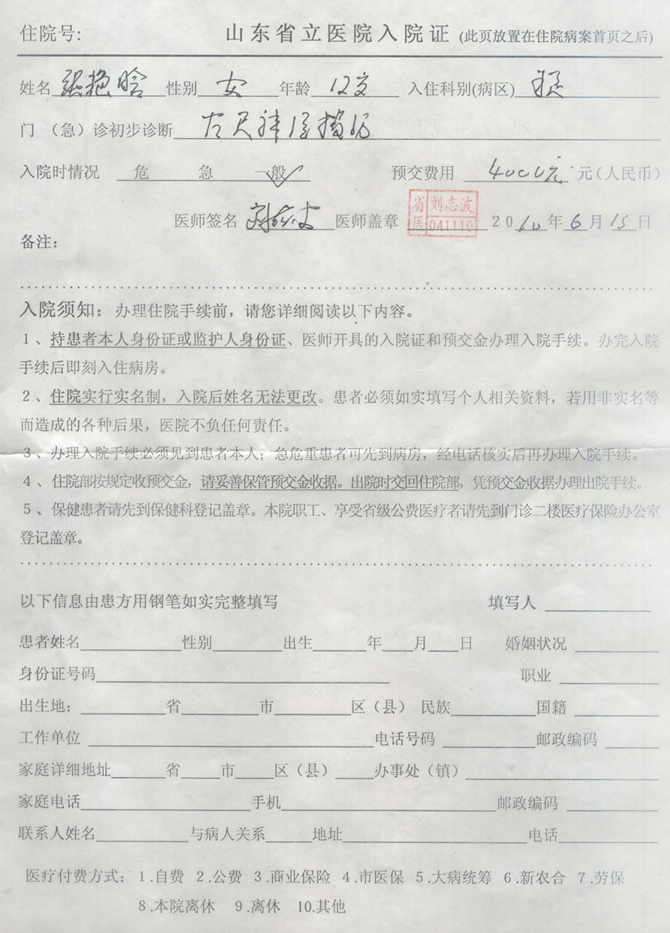 住院号: 山东省立医院入院证 (此页放置在住院病案首页之后)
姓名 张艳晗 性别 女 年龄 12岁 入住科别(病区)
门 (急)诊初步诊断 左尺神经损伤
入院时情况 危 急 一般 预交费用 4000元 元(人民币)
医师签名 刘志波 医师盖章 省医 刘志波 041110 2010年6月15日
备注:
入院须知: 办理住院手续前，请您详细阅读以下内容。
1、持患者本人身份证或监护人身份证、医师开具的入院证和预交金办理入院手续。办完入院
手续后即刻入住病房。
2、住院实行实名制，入院后姓名无法更改。患者必须如实填写个人相关资料，若用非实名等
而造成的各种后果，医院不负任何责任。
3、办理入院手续必须见到患者本人；急危重患者可先到病房，经电话核实后再办理入院手续。
4、住院部按规定收预交金，请妥善保管预交金收据。出院时交回住院部，凭预交金收据办理出院手续。
5、保健患者请先到保健科登记盖章。本院职工、享受省级公费医疗者请先到门诊二楼医疗保险办公室
登记盖章。
以下信息由患方用钢笔如实完整填写 填写人
患者姓名 性别 出生 年 月 日 婚姻状况
身份证号码 职业
出生地: 省 市 区(县) 民族 国籍
工作单位 电话号码 邮政编码
家庭详细地址 省 市 区(县) 办事处(镇)
家庭电话 手机 邮政编码
联系人姓名 与病人关系 地址 电话
医疗付费方式: 1.自费 2.公费 3.商业保险 4.市医保 5.大病统筹 6.新农合 7.劳保
8.本院离休 9.离休 10.其他